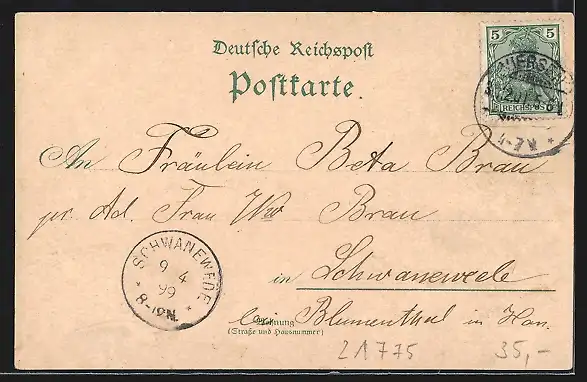 Deutsche Reichspost
Postkarte
5 5
REICHSPOST
4-7N *
An Fräulein Beta Brau
pr. Ad. Frau Ww Brau
SCHWANEWEDE
9 4
99
* 8-12N. *
in Schwanewede
bei Blumenthal in Han.
Wohnung
(Straße und Hausnummer)
21775 35,-